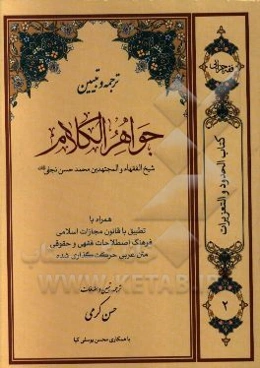 ترجمه و تبیین
جواهر الکلام
شیخ الفقهاء و المجتهدین محمد حسن نجفی
همراه با
تطبیق با قانون مجازات اسلامی
فرهنگ اصطلاحات فقهی و حقوقی
متن عربی حرکت گذاری شده
ترجمه، تبیین و اضافات
حسن کرمی
با همکاری محسن یوسفی کیا
فقه جزایی
کتاب الحدود و التعزیرات
۲